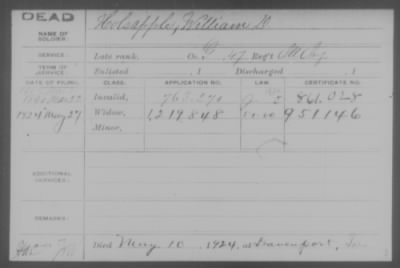 DEAD
NAME OF SOLDIER: Holsapple, William D.
SERVICE: Late rank, Co. G, 47 Reg't Ill Inf
TERM OF SERVICE: Enlisted , 1 Discharged , 1
DATE OF FILING. CLASS. APPLICATION NO. LAW. CERTIFICATE NO.
Invalid, 861.028
1924 May 27 Widow, 1219848 951146
Minor,
ADDITIONAL SERVICES:
REMARKS:
Died May 10, 1924, at Davenport, Ia